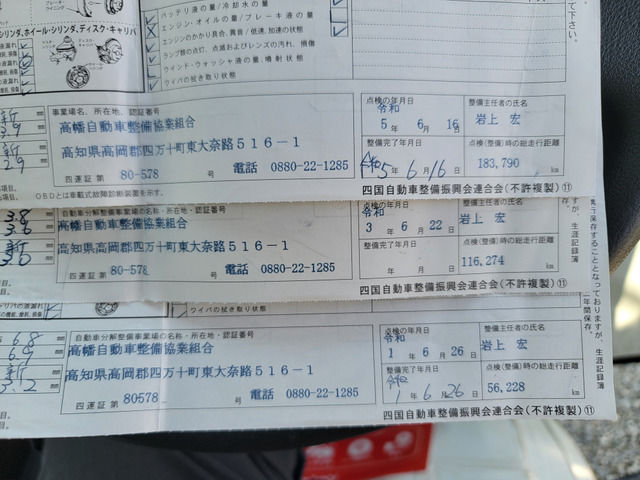 シリンダ、ホイール・シリンダ、ディスク・キャリパ
バッテリ液の量/冷却水の量
エンジン・オイルの量/ブレーキ液の量
エンジンのかかり具合、異音/低速、加速の状態
ランプ類の点灯、点滅およびレンズの汚れ、損傷
ウインド・ウォッシャ液の量、噴射状態
ワイパの拭き取り状態
て下さい。
事業場名、所在地、認証番号
高幡自動車整備協業組合
高知県高岡郡四万十町東大奈路516-1
四運証 第 80-578 号 電話 0880-22-1285
点検の年月日
令和
5 年 6 月 16 日
整備主任者の氏名
岩上 宏
整備完了年月日
令和5 年 6 月 16 日
点検(整備)時の総走行距離
183,790 km
OBDとは車載式故障診断装置を示す。
四国自動車整備振興会連合会(不許複製)⑪
3.8 mm
3.6 mm
新 mm
自動車分解整備事業場の名称・所在地・認証番号
高幡自動車整備協業組合
高知県高岡郡四万十町東大奈路516-1
四運証 第 80-578 号 電話 0880-22-1285
点検の年月日
令和
3 年 6 月 22 日
整備主任者の氏名
岩上 宏
整備完了年月日
年 月 日
点検(整備)時の総走行距離
116,274 km
四国自動車整備振興会連合会(不許複製)⑪
ワイパの拭き取り状態
6.8 mm
6.9 mm
新 mm
3.2 mm
自動車分解整備事業場の名称・所在地・認証番号
高幡自動車整備協業組合
高知県高岡郡四万十町東大奈路516-1
四運証 第 80578 号 電話 0880-22-1285
点検の年月日
令和
1 年 6 月 26 日
整備主任者の氏名
岩上 宏
整備完了年月日
令和
1 年 6 月 26 日
点検(整備)時の総走行距離
56,228 km
四国自動車整備振興会連合会(不許複製)⑪